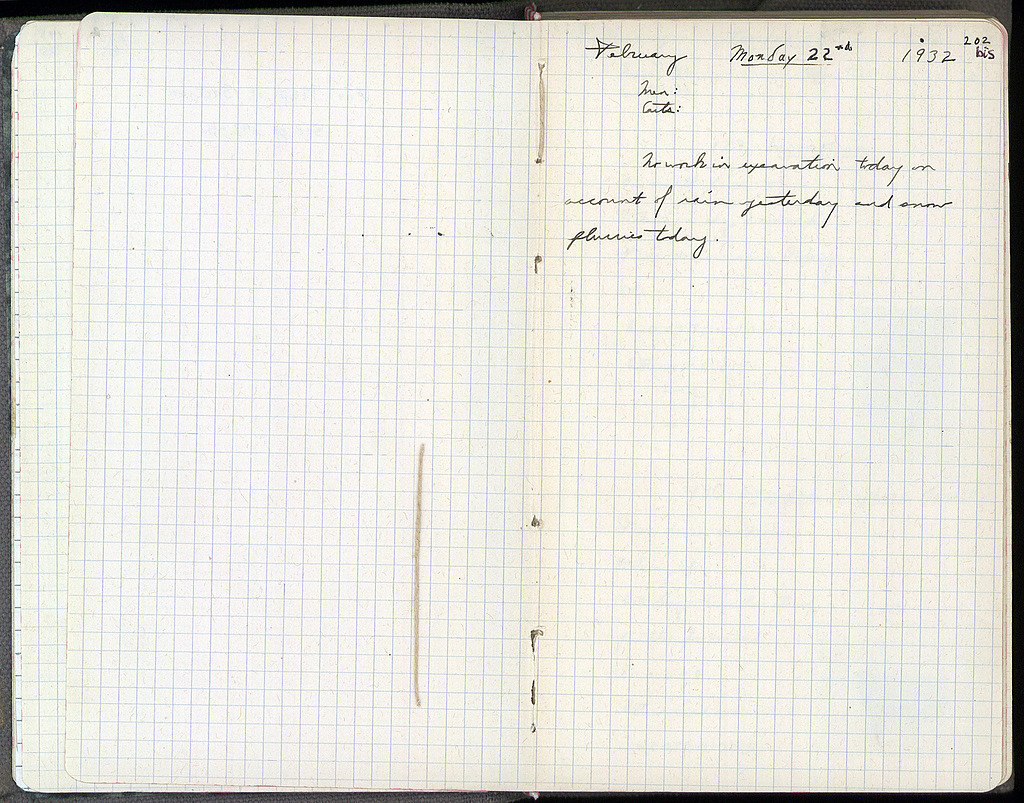 February Monday 22nd 1932 202 bis
Men:
Carts:
No work in excavation today on
account of rain yesterday and snow
flurries today.